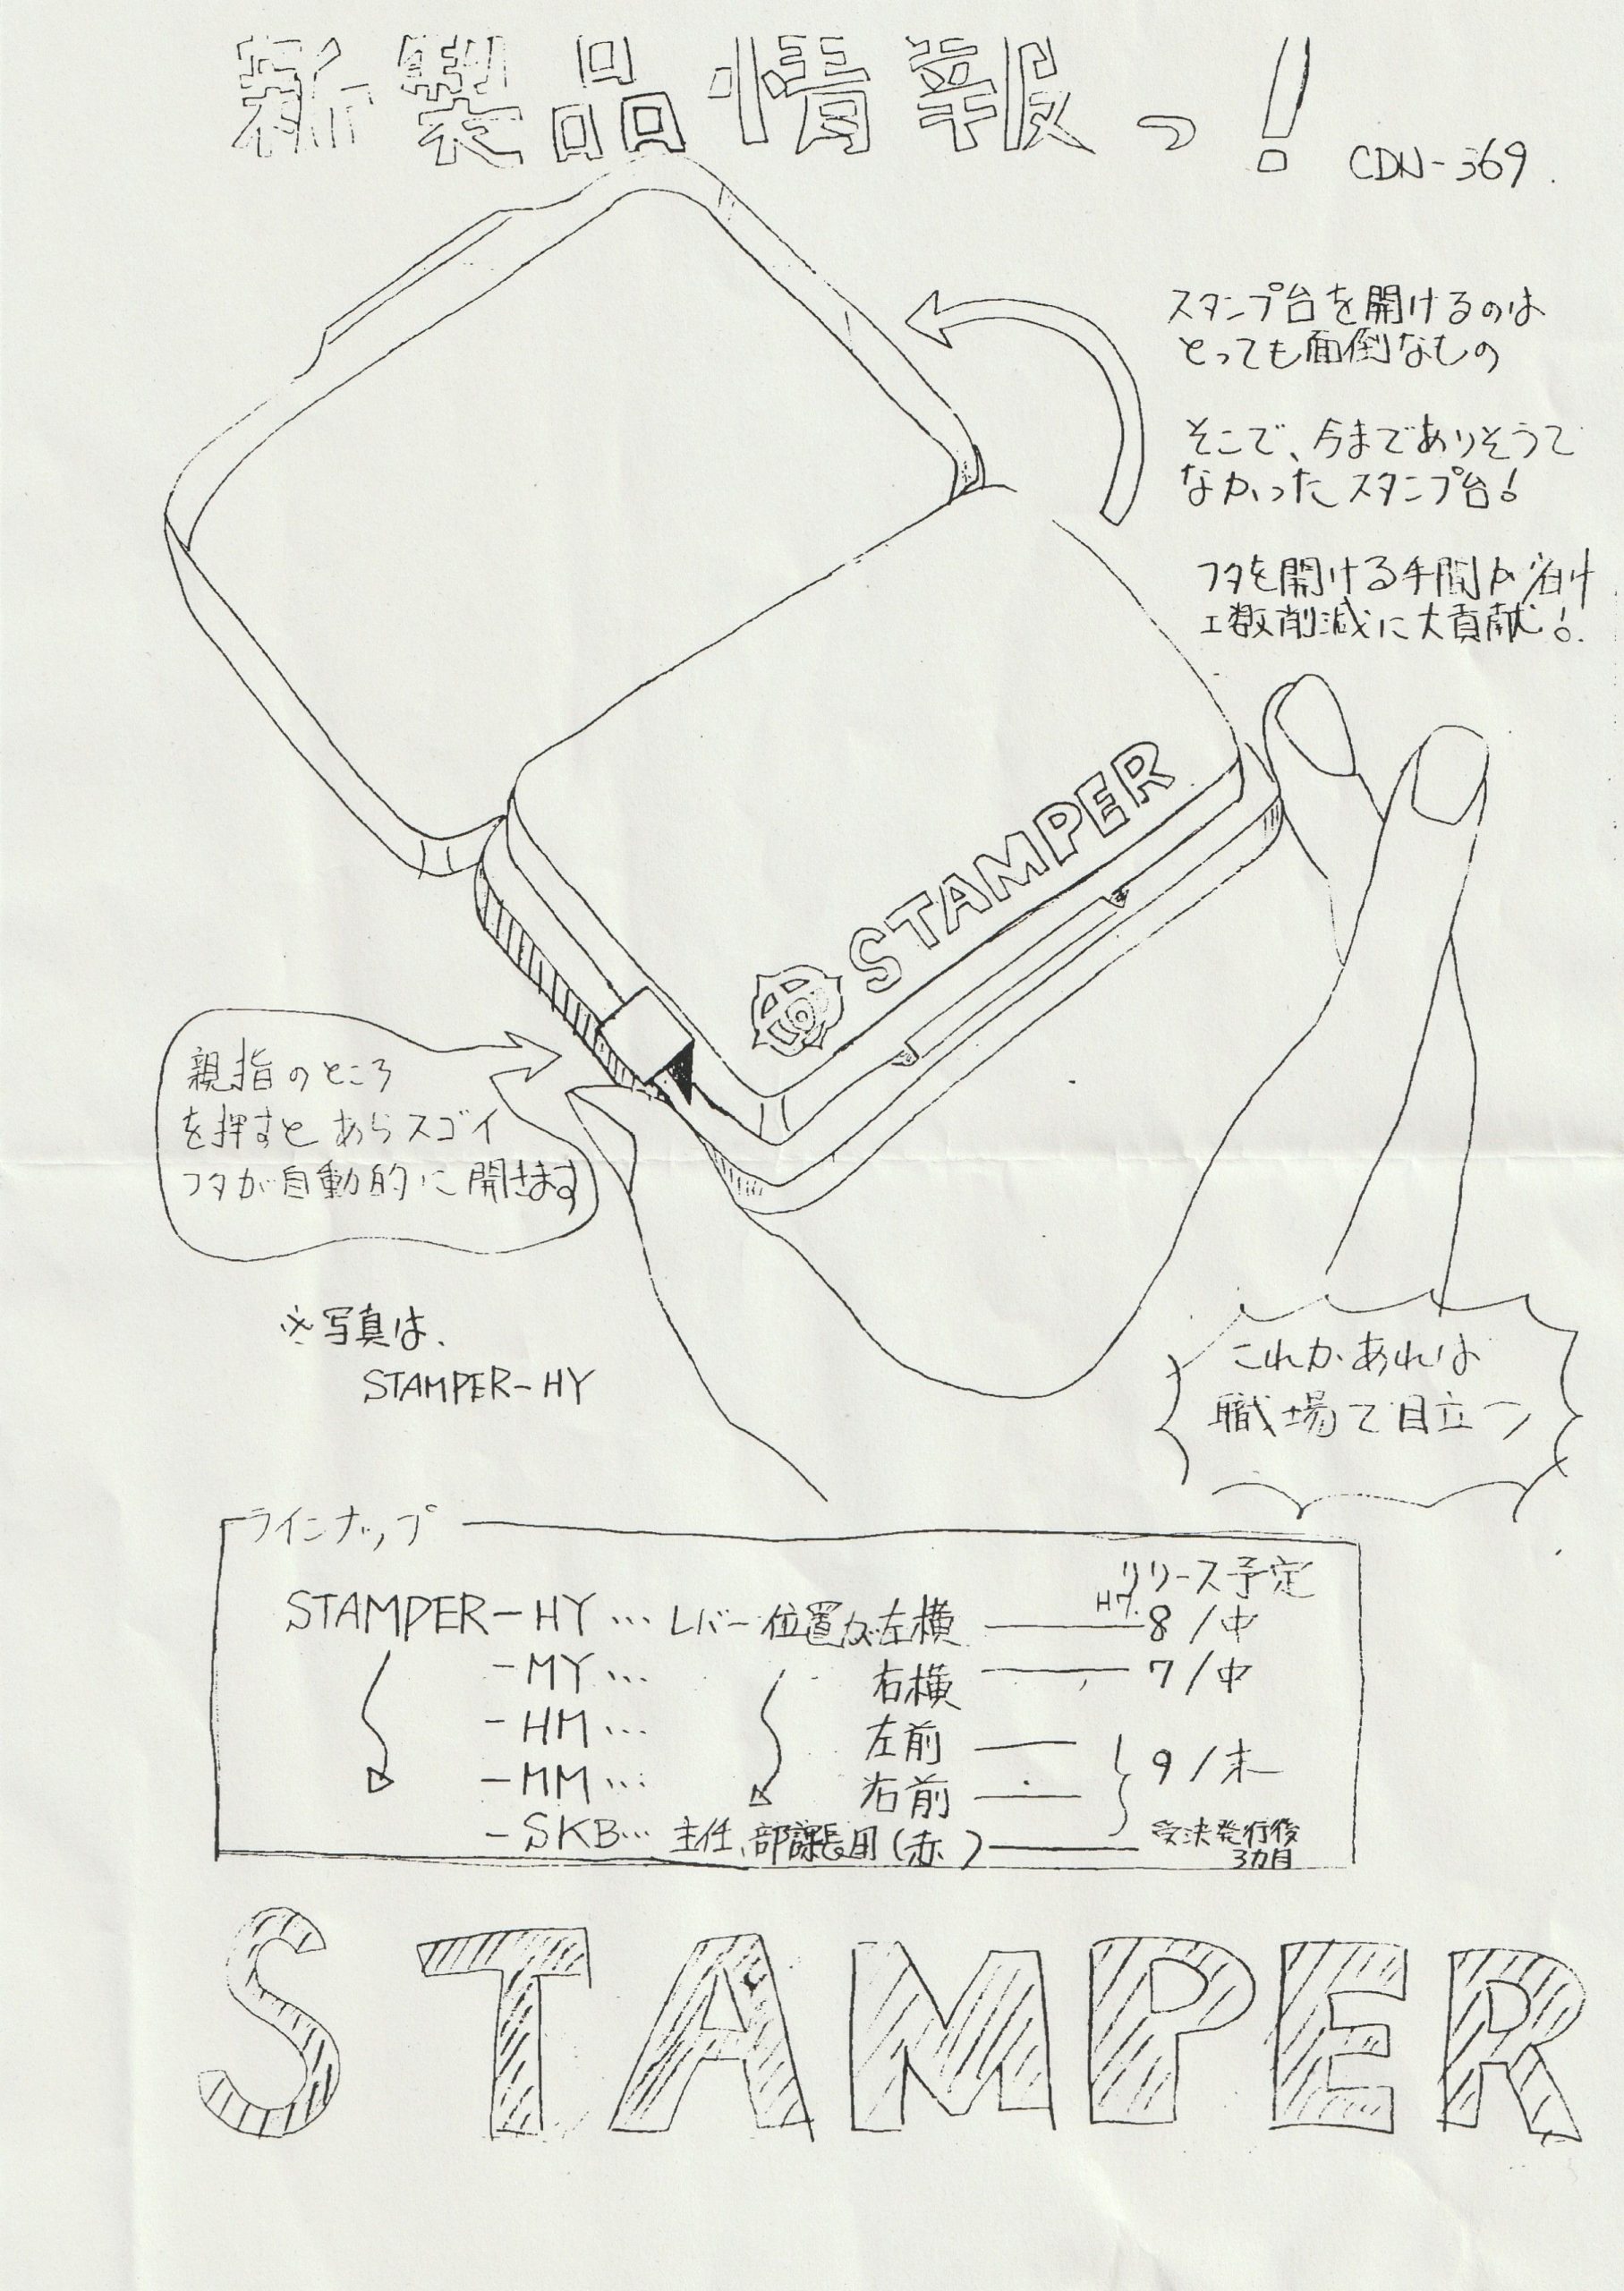 新製品情報っ!
CDN-369
スタンプ台を開けるのは
とっても面倒なもの
そこで、今までありそうで
なかったスタンプ台!
フタを開ける手間が省け
工数削減に大貢献!
STAMPER
親指のところ
を押すとあらスゴイ
フタが自動的に開きます
※写真は、
STAMPER-HY
これがあれば
職場で目立つ
ラインナップ
リリース予定
STAMPER-HY… レバー位置が左横 H7. 8/中
-MY… 右横 7/中
-HM… 左前
-MM… 右前
9/末
-SKB… 主任、部課長用(赤) 受決発行後
3カ月
STAMPER